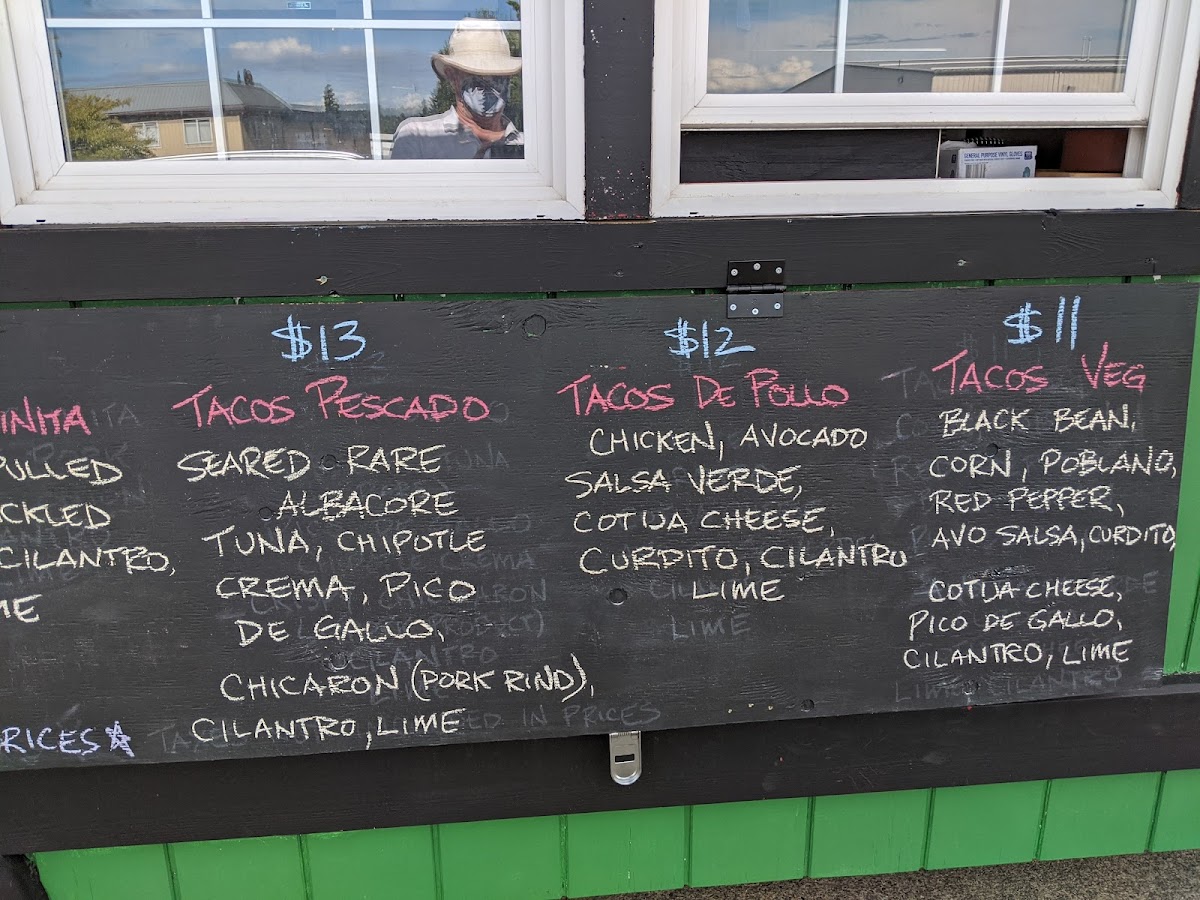 GENERAL PURPOSE VINYL GLOVES
INITA
PULLED
CKLED
CILANTRO,
ME
RICES
$13
TACOS PESCADO
SEARED RARE
ALBACORE
TUNA, CHIPOTLE
CREMA, PICO
DE GALLO,
CHICARON (PORK RIND),
CILANTRO, LIME
$12
TACOS DE POLLO
CHICKEN, AVOCADO
SALSA VERDE,
COTIJA CHEESE,
CURDITO, CILANTRO
LIME
$11
TACOS VEG
BLACK BEAN,
CORN, POBLANO,
RED PEPPER,
AVO SALSA, CURDITO,
COTIJA CHEESE,
PICO DE GALLO,
CILANTRO, LIME